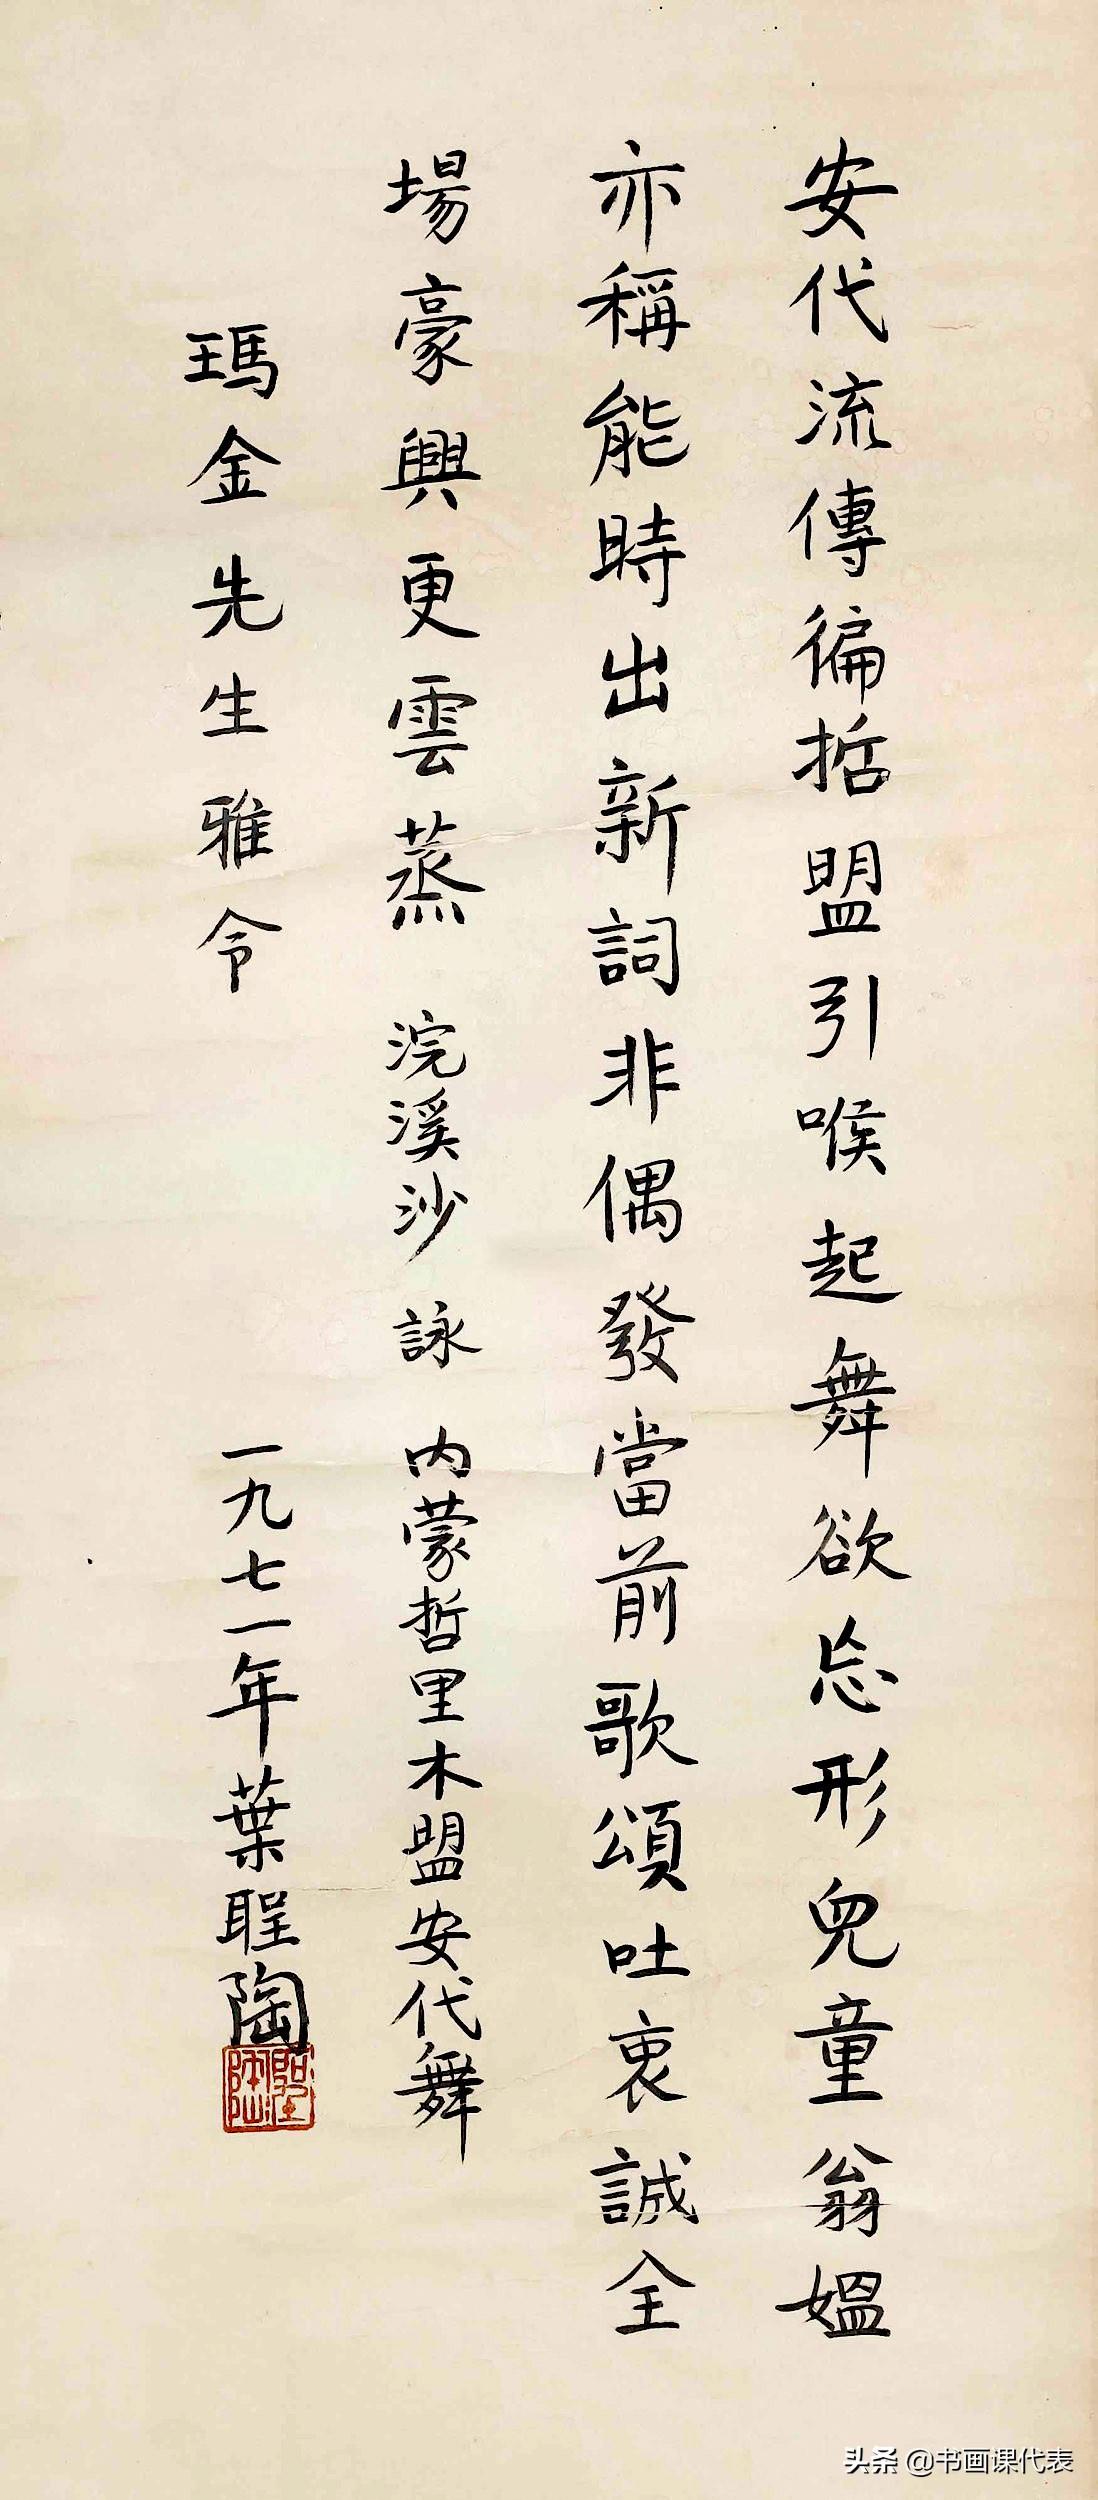 安代流傳徧哲盟引喉起舞欲忘形兒童翁媼
亦稱能時出新詞非偶發當前歌頌吐衷誠全
場豪興更雲蒸 浣溪沙 詠 内蒙哲里木盟安代舞
瑪金先生雅令 一九七一年葉聖陶
聖陶
头条 @书画课代表